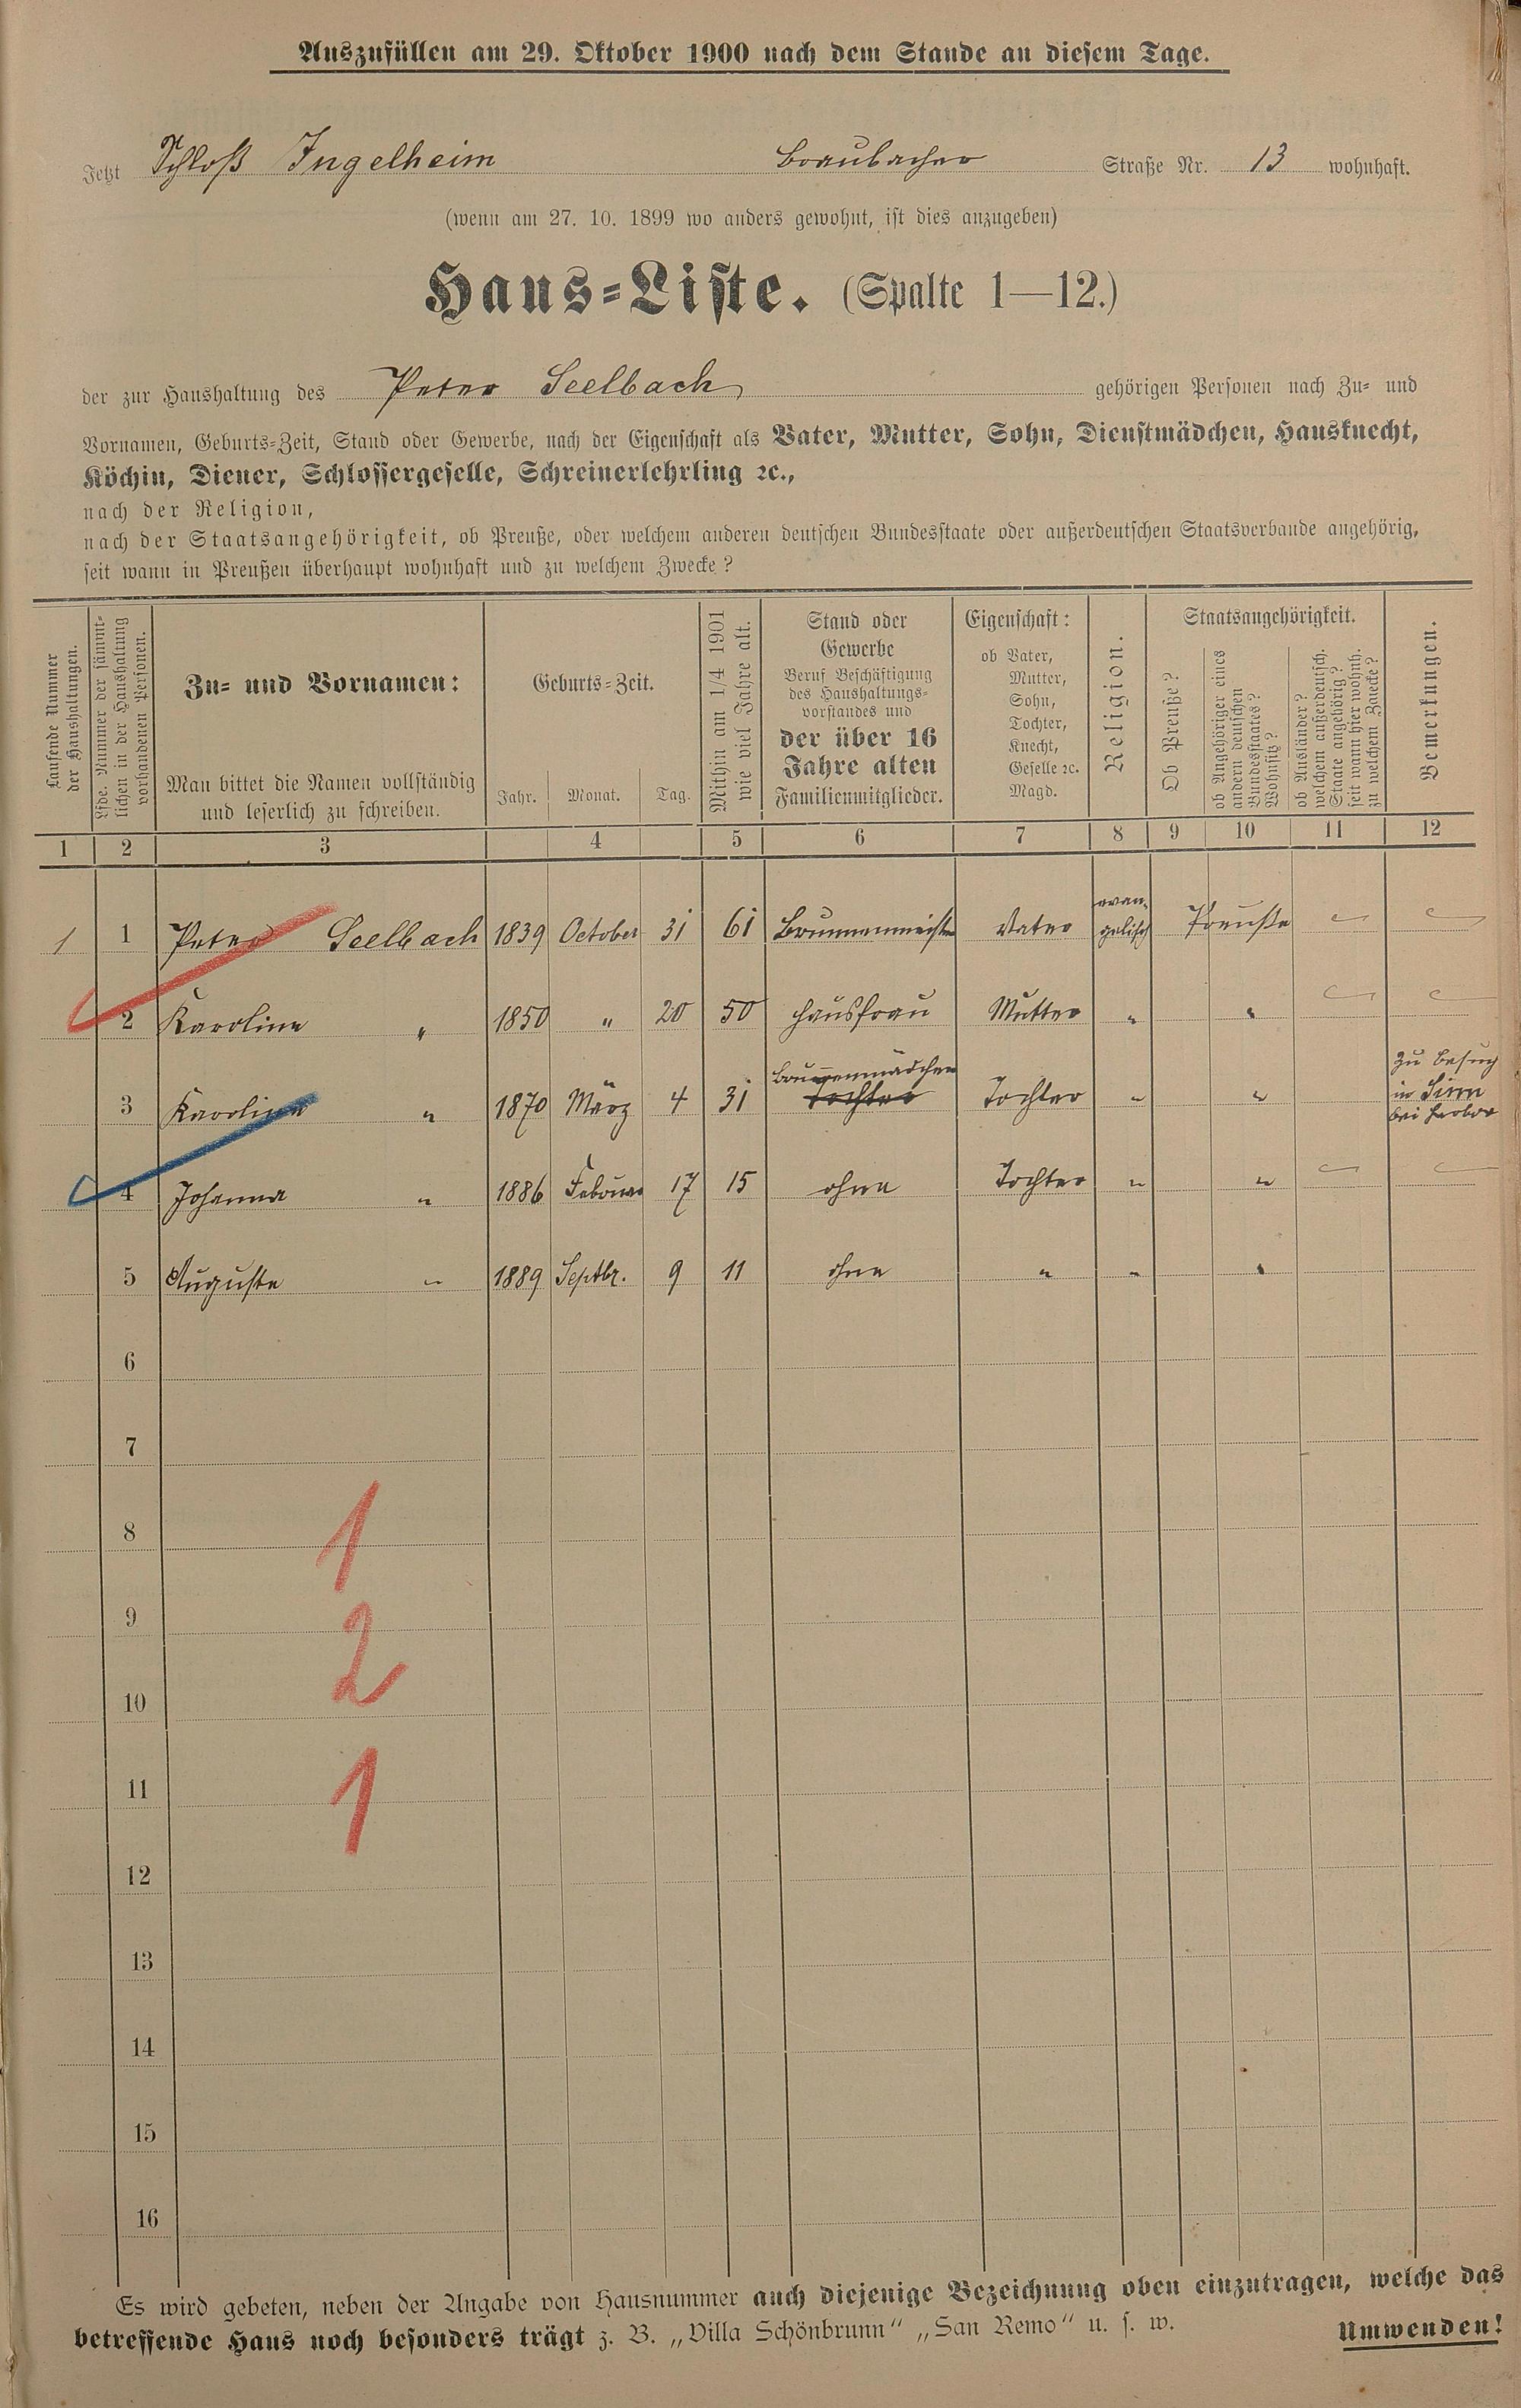 Auszufüllen am 29. Oktober 1900 nach dem Stande an diesem Tage.
Jetzt Schloß Ingelheim Braubacher Straße Nr. 13 wohnhaft.
(wenn am 27. 10. 1899 wo anders gewohnt, ist dies anzugeben)
Haus-Liste. (Spalte 1—12.)
der zur Haushaltung des Peter Seelbach gehörigen Personen nach Zu- und
Vornamen, Geburts-Zeit, Stand oder Gewerbe, nach der Eigenschaft als Vater, Mutter, Sohn, Dienstmädchen, Hausknecht,
Köchin, Diener, Schlossergeselle, Schreinerlehrling ꝛc.,
nach der Religion,
nach der Staatsangehörigkeit, ob Preuße, oder welchem anderen deutschen Bundesstaate oder außerdeutschen Staatsverbande angehörig,
seit wann in Preußen überhaupt wohnhaft und zu welchem Zwecke?
Laufende Nummer
der Haushaltungen.
Lfde. Nummer der sämmt-
lichen in der Haushaltung
vorhandenen Personen.
Zu- und Vornamen:
Man bittet die Namen vollständig
und leserlich zu schreiben.
Geburts-Zeit.
Jahr. Monat. Tag.
Mithin am 1/4 1901
wie viel Jahre alt.
Stand oder
Gewerbe
Beruf Beschäftigung
des Haushaltungs-
vorstandes und
der über 16
Jahre alten
Familienmitglieder.
Eigenschaft:
ob Vater,
Mutter,
Sohn,
Tochter,
Knecht,
Geselle ꝛc.
Magd.
Religion.
Staatsangehörigkeit.
Ob Preuße?
ob Angehöriger eines
andern deutschen
Bundesstaates?
Wohnsitz?
ob Ausländer?
welchem außerdeutsch.
Staate angehörig?
seit wann hier wohnh.
zu welchem Zwecke?
Bemerkungen.
1 2 3 4 5 6 7 8 9 10 11 12
1 1 Peter Seelbach 1839 October 31 61 Brunnenmeister Vater evan-
gelisch Preuße
2 Karoline " 1850 " 20 50 Hausfrau Mutter " "
3 Karoline " 1870 März 4 31 Brunnenmädchen
Tochter Tochter " " zu Besuch
in Sinn
bei Herborn
4 Johanna " 1886 Februar 17 15 ohne Tochter " "
5 Auguste " 1889 Septbr. 9 11 ohne " " "
6
7
8
1
9
2
10
11
1
12
13
14
15
16
Es wird gebeten, neben der Angabe von Hausnummer auch diejenige Bezeichnung oben einzutragen, welche das
betreffende Haus noch besonders trägt z. B. „Villa Schönbrunn" „San Remo" u. s. w.
Umwenden!